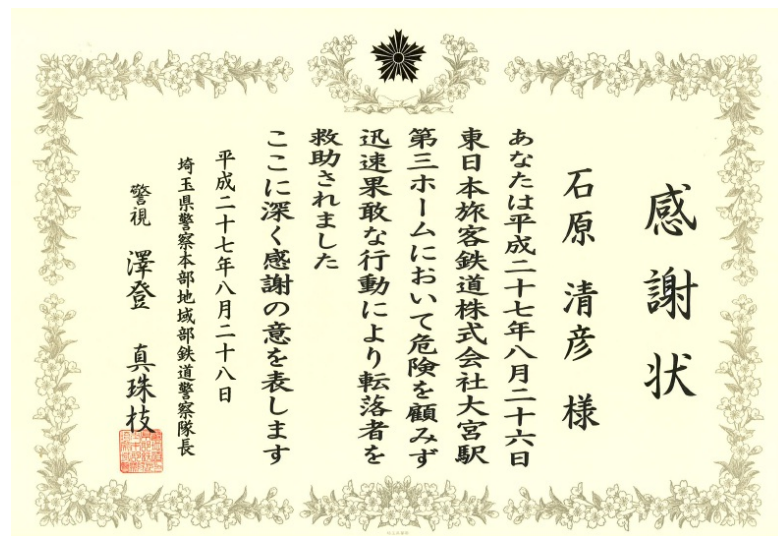 感謝状
石原 清彦 様
あなたは平成二十七年八月二十六日
東日本旅客鉄道株式会社大宮駅
第三ホームにおいて危険を顧みず
迅速果敢な行動により転落者を
救助されました
ここに深く感謝の意を表します
平成二十七年八月二十八日
埼玉県警察本部地域部鉄道警察隊長
警視 澤登 真珠枝